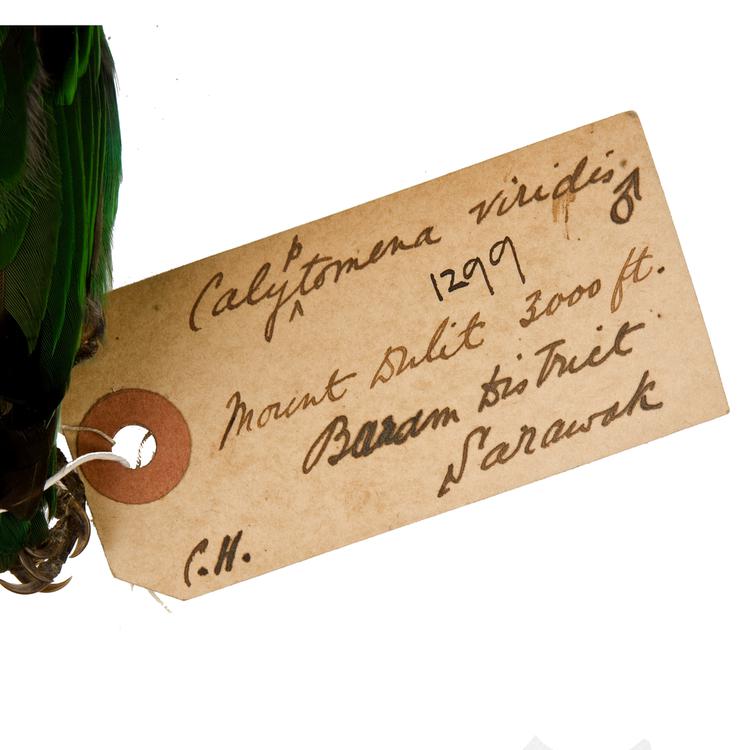 Calyptomena viridis ♂
1299
Mount Dulit 3000 ft.
Baram District
Sarawak
C.H.